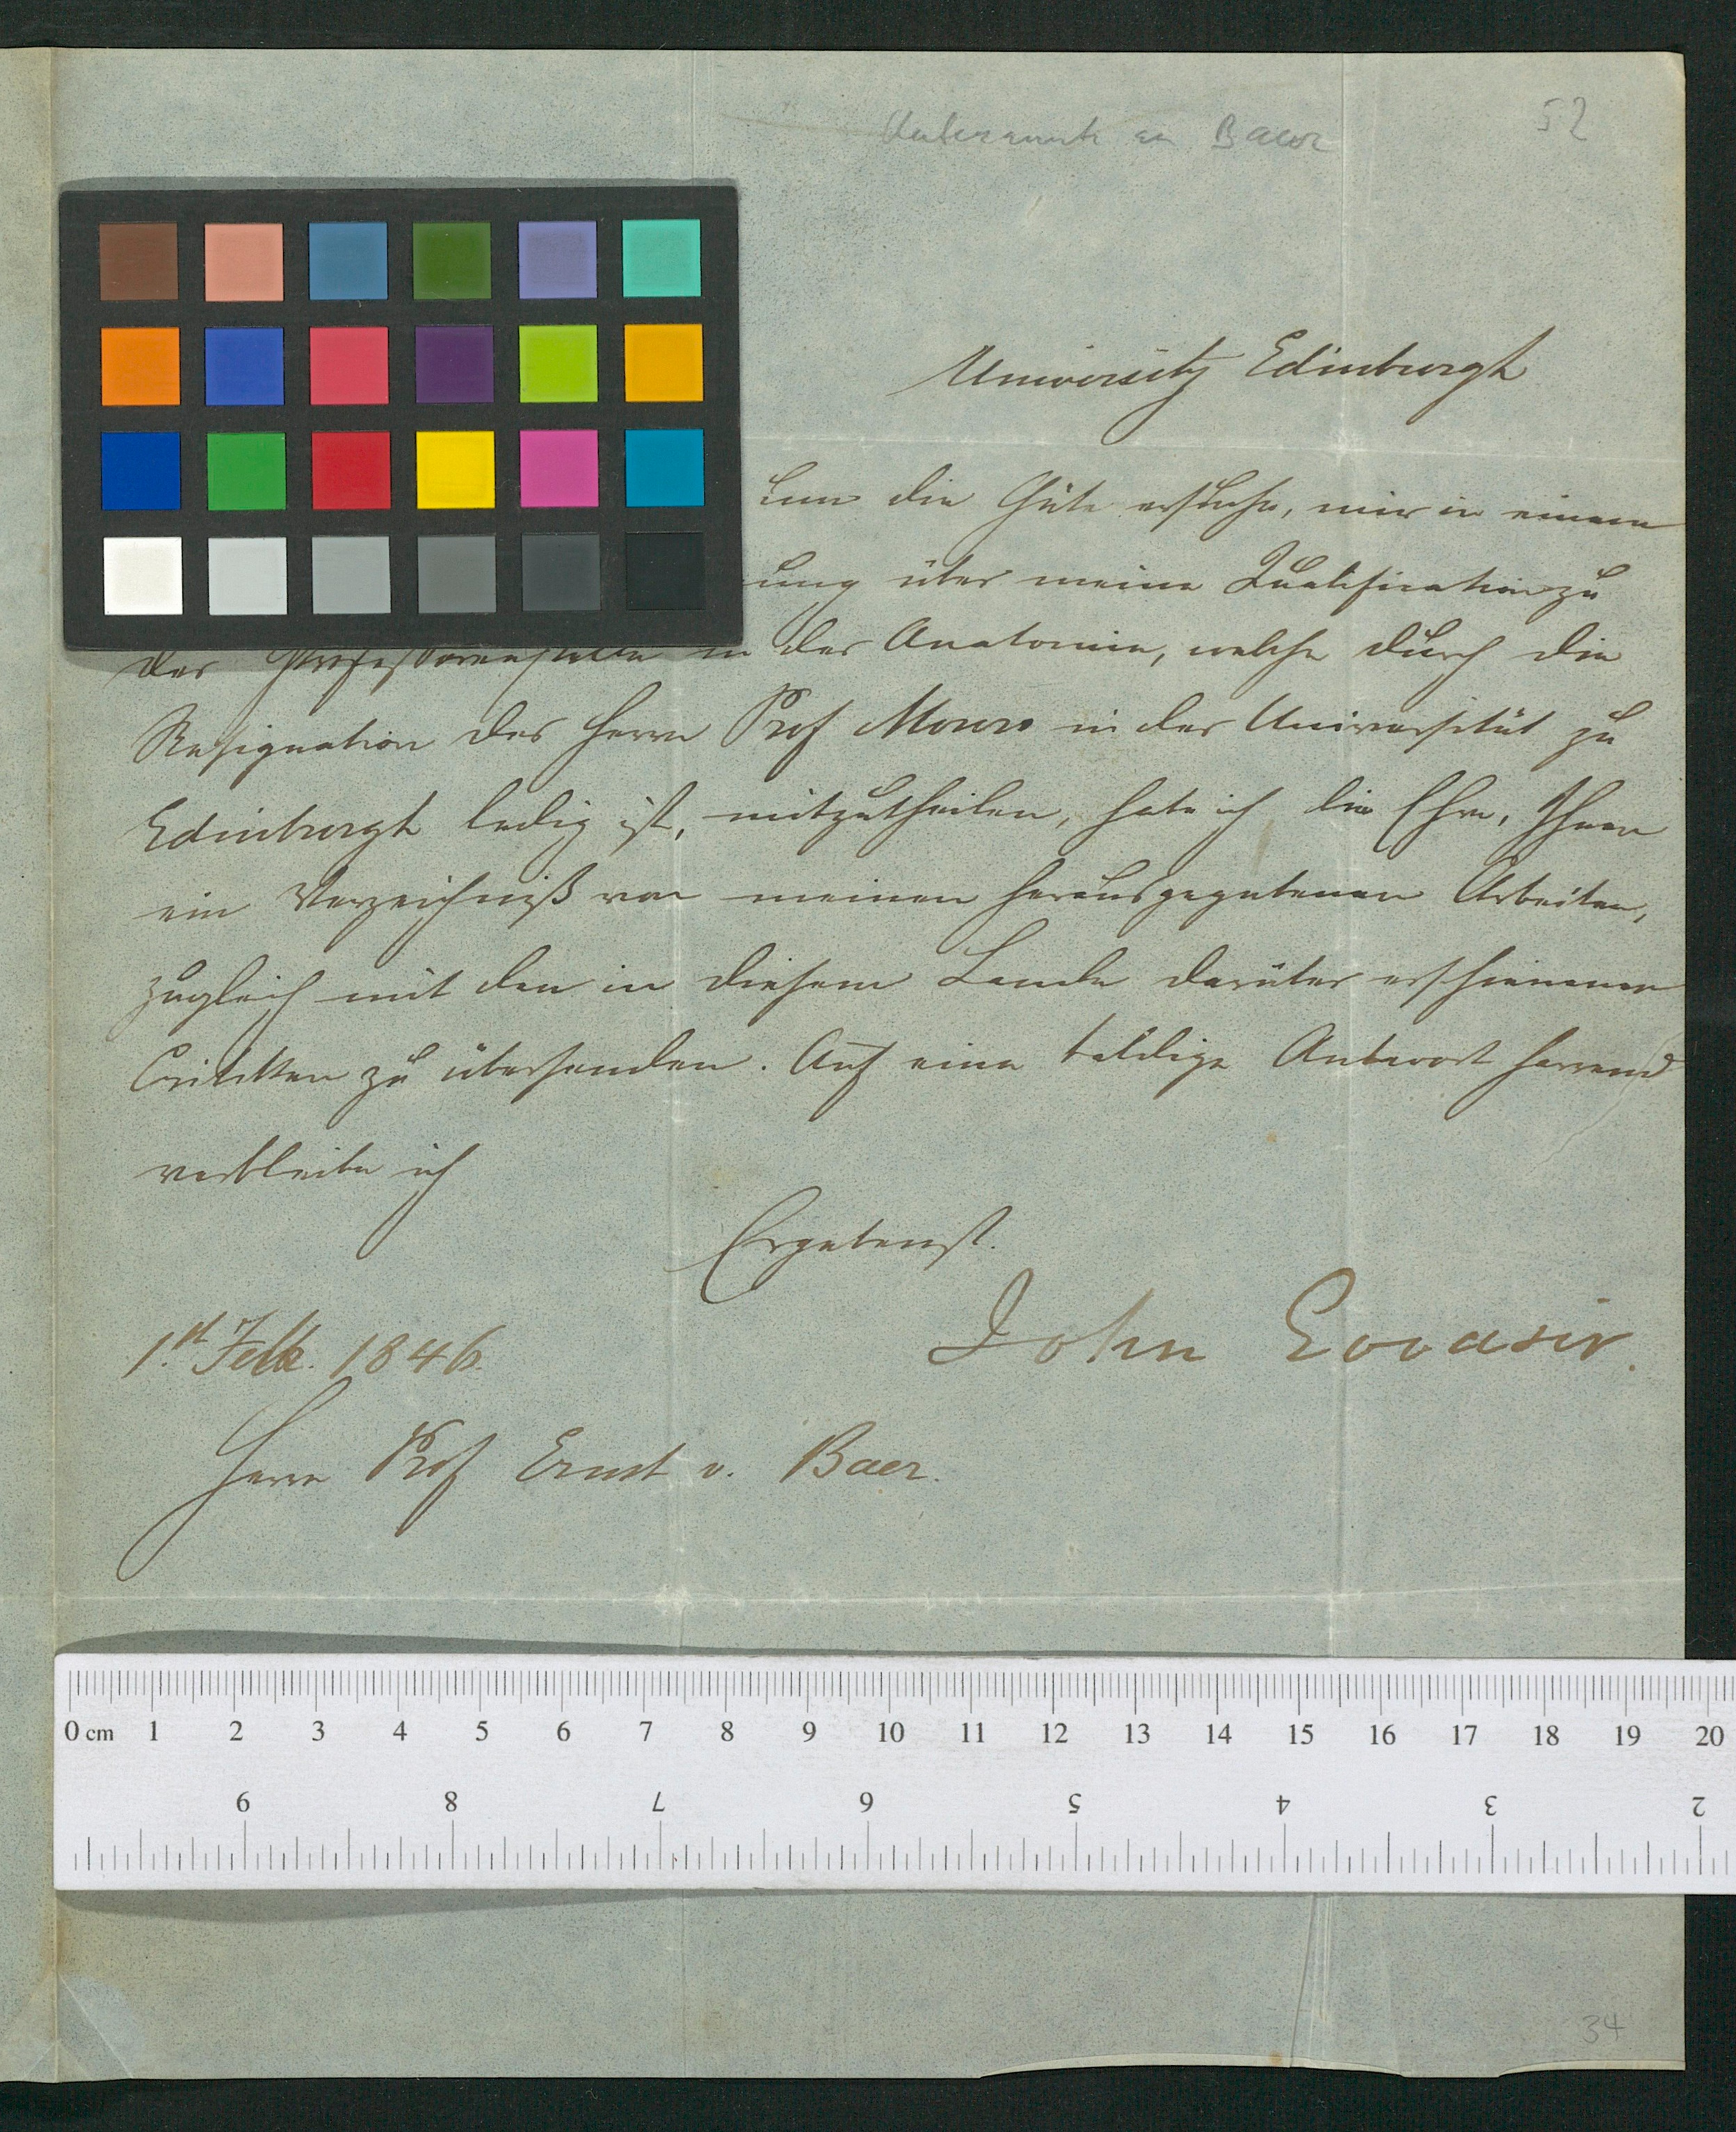 an Baer
52
University Edinburgh
um die Güte ersuche, mir in einem
ung über meine Qualification zu
der Professorenstelle in der Anatomie, welche durch die
Resignation des Herrn Prof Monro in der Universität zu
Edinburgh ledig ist, mitzutheilen, habe ich die Ehre, Ihnen
ein Verzeichniß von meinen herausgegebenen Arbeiten,
zugleich mit den in diesem Lande darüber erschienenen
Critikken zu übersenden. Auf eine baldige Antwort harrend
verbleibe ich
Ergebenst.
John Goodsir.
1st Feb. 1846.
Herrn Prof Ernst v. Baer.
0 cm 1 2 3 4 5 6 7 8 9 10 11 12 13 14 15 16 17 18 19 20
9 8 7 6 5 4 3 2
34